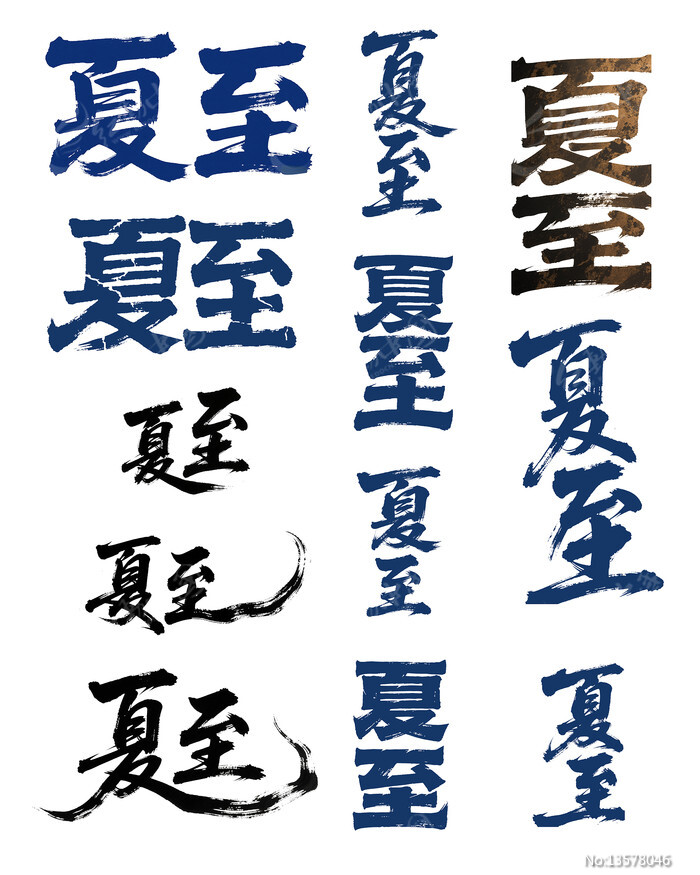 夏至
夏至
夏至
夏至
夏至
夏至
夏至
夏至
夏至
夏至
夏至
夏至
No:13578046